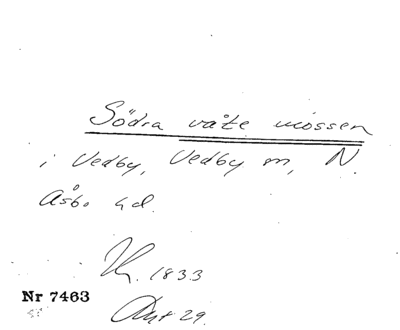 Södra våte mossen
i Vedby, Vedby sn, N.
Åsbo hd.
1833
Nr 7463
Akt 29.